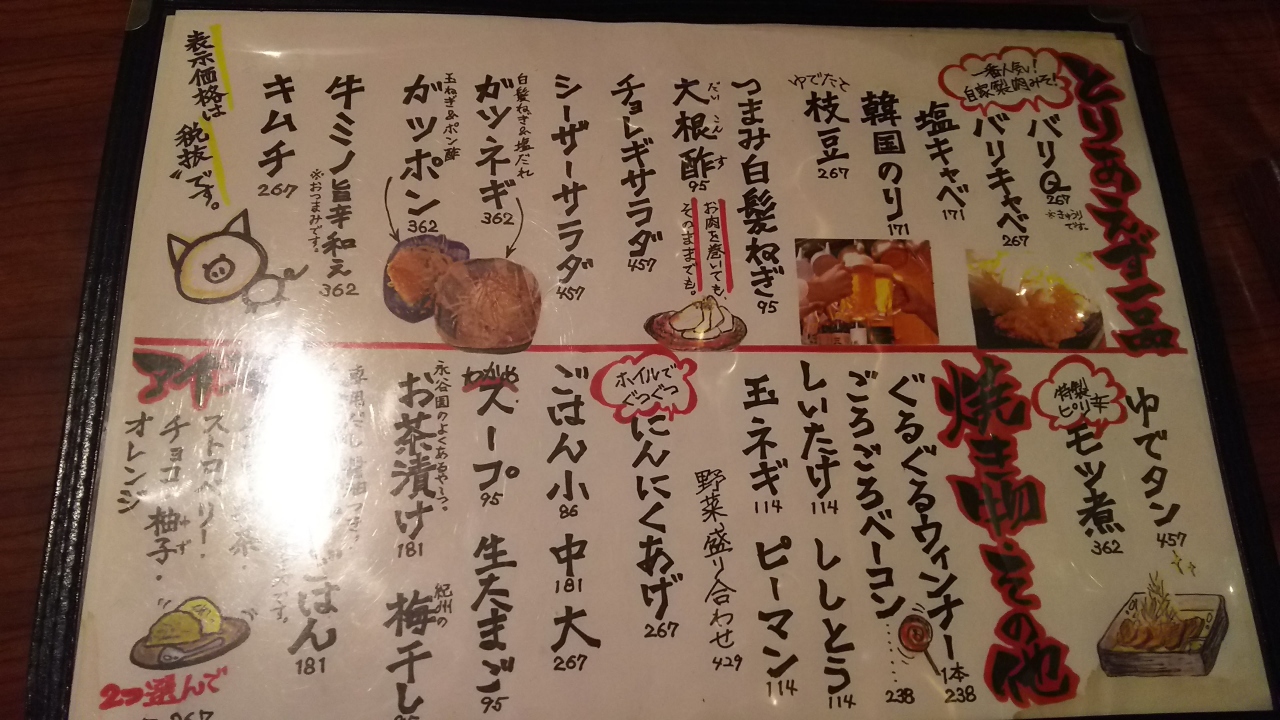 とりあえず一品
一番人気!
自家製肉みそ!
バリQ
267
※きゅうりです。
バリキャベ
267
塩キャベ
171
韓国のり
171
ゆでたて
枝豆
267
つまみ白髪ねぎ
95
だいこんす
大根酢
95
お肉を巻いても、
そのままでも。
チョレギサラダ
457
シーザーサラダ
457
白髪ねぎ&塩だれ
ガツネギ
362
玉ねぎ&ポン酢
ガツポン
362
牛ミノ旨辛和え
※おつまみです。
362
キムチ
267
表示価格は
税抜です。
ゆでタン
457
特製
ピリ辛
モツ煮
362
焼き物その他
ぐるぐるウィンナー
1本
238
ごろごろベーコン
238
しいたけ
114
ししとう
114
玉ネギ
114
ピーマン
114
野菜盛り合わせ
429
ホイルで
ぐつぐつ
にんにくあげ
267
ごはん小
86
中
181
大
267
わかめ
スープ
95
生たまご
95
永谷園のよくあるやつ。
お茶漬け
181
紀州の
梅干し
95
ごはん
181
アイ
茶・
ストロベリー・
チョコ・
ゆず
柚子・
オレンジ
2つ選んで
267